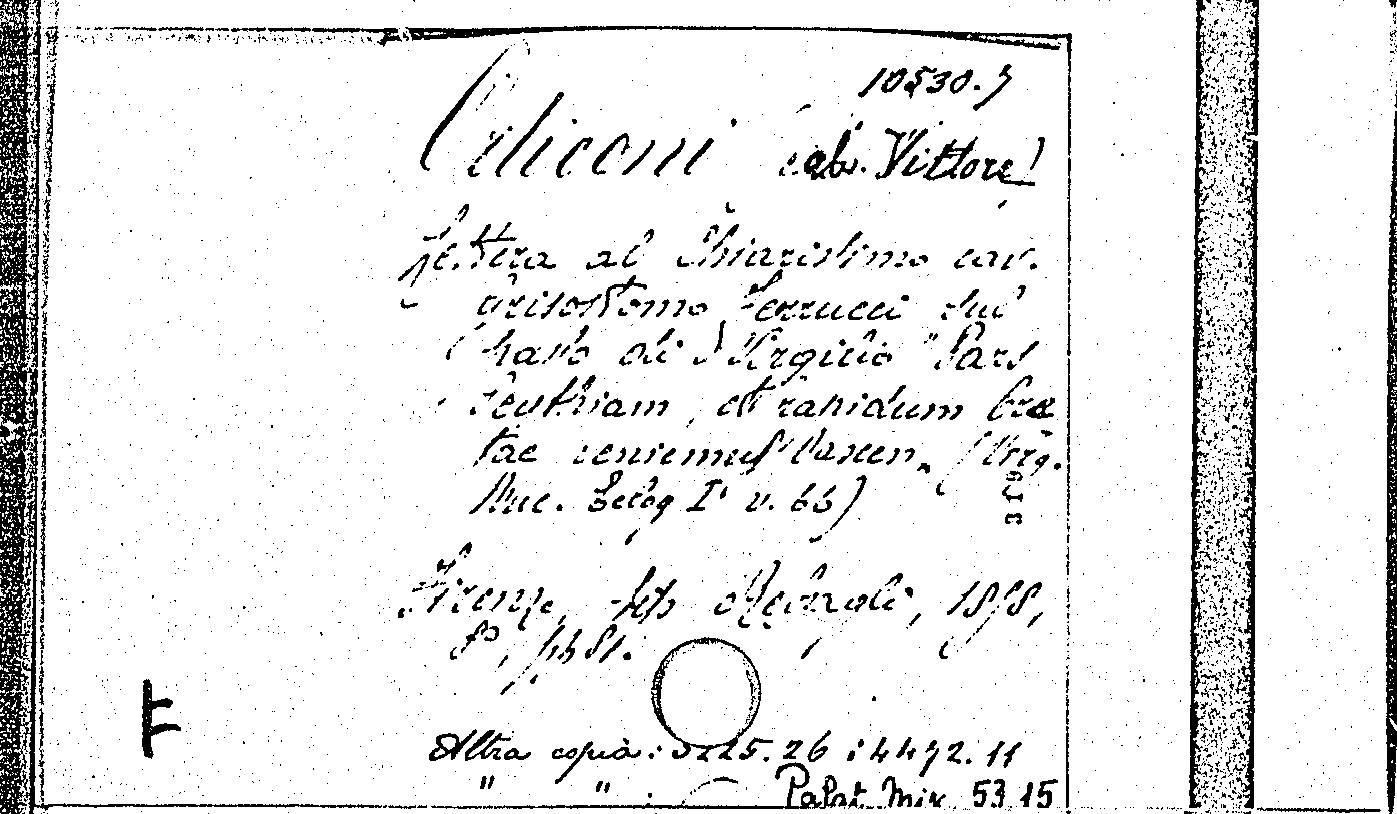 10530.7
(ab. Vittore)
Lettera al Chiarissimo cav.
Grisostomo Ferrucci sul
passo di Virgilio "Pars
Scythiam, et rapidum Cre
tae veniemus Oaxen" (Virg.
Buc. Eclog Iª v. 65)
Firenze, tip
8º, pp
Altra copia: 5225.26 : 4472.11
" " : Palat. Mix. 53 15
F